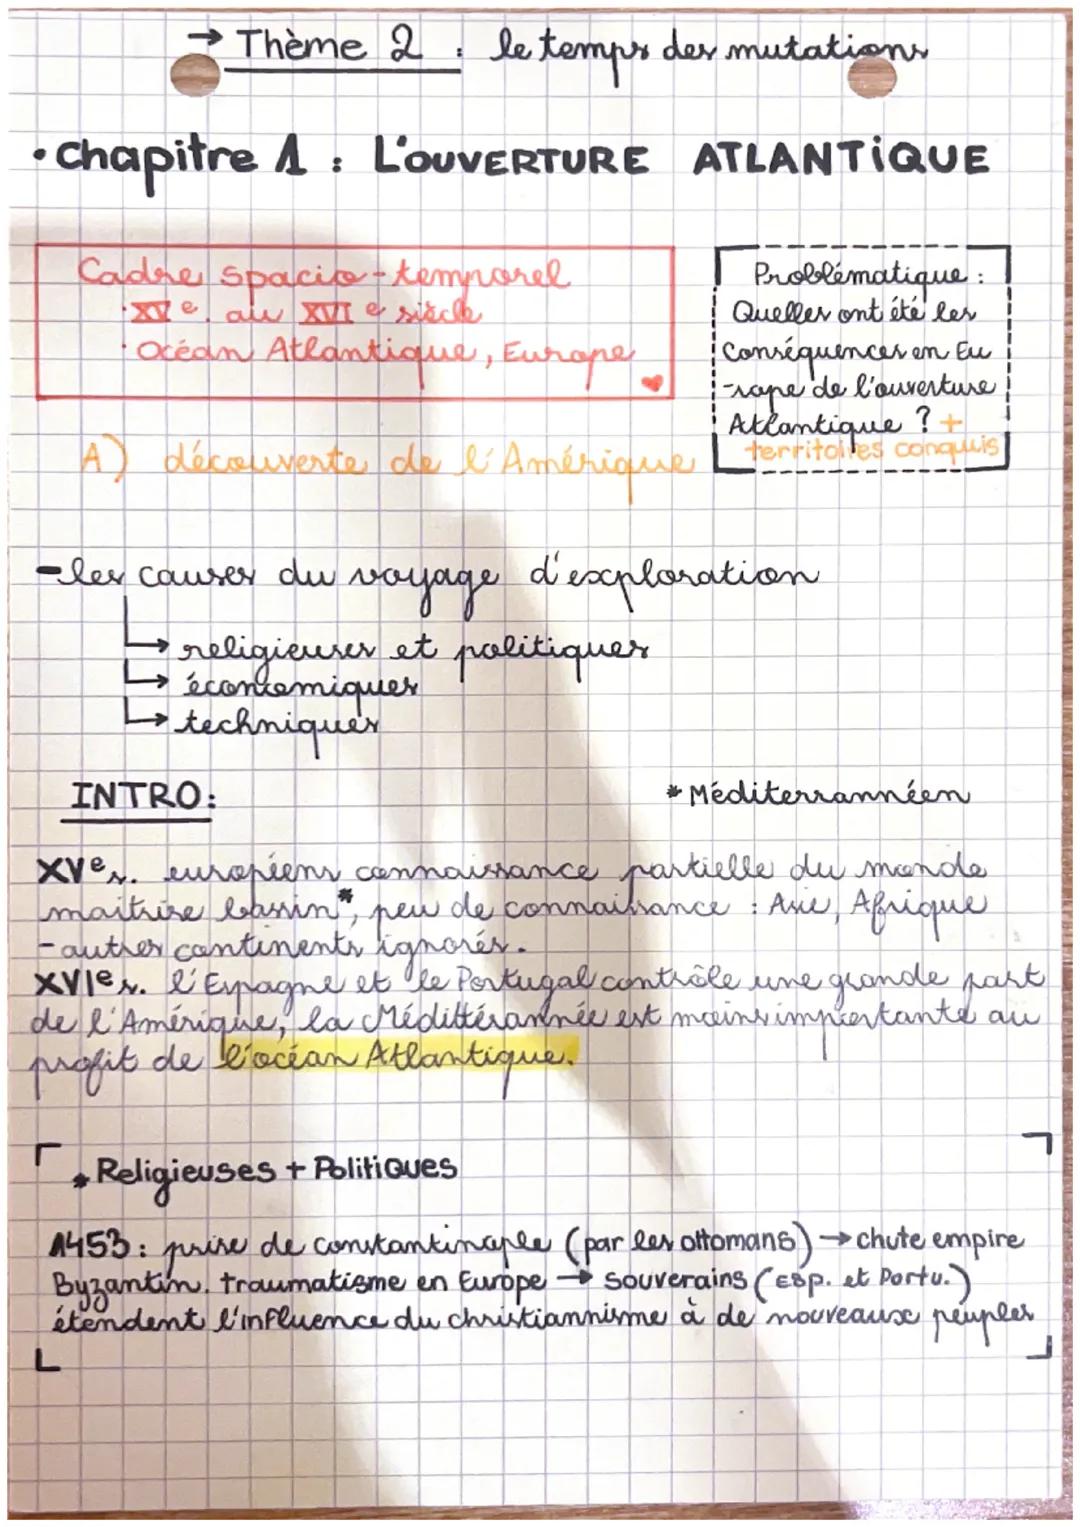 → Thème 2 : le temps des mutations
• Chapitre 1 : L'OUVERTURE ATLANTIQUE
Cadre spacio-temporel
• XVe au XVIe siècle
• Océan Atlantique, Europe
Problématique :
Quelles ont été les
Conséquences en Eu
-rope de l'ouverture
Atlantique ? +
territoires conquis
A) découverte de l'Amérique
- les causes du voyage d'exploration
↳ religieuses et politiques
↳ économiques
↳ techniques
INTRO:
* Méditerrannéen
XVe s. européens connaissance partielle du monde
maitrise bassin*, peu de connaissance : Asie, Afrique
- autres continents ignorés.
XVIe s. l'Espagne et le Portugal contrôle une grande part
de l'Amérique, la Méditterannée est moins importante au
profit de l'océan Atlantique.
• Religieuses + Politiques
1453 : prise de constantinople (par les ottomans) → chute empire
Byzantin. traumatisme en Europe → souverains (Esp. et Portu.)
étendent l'influence du christiannisme à de nouveaux peuples